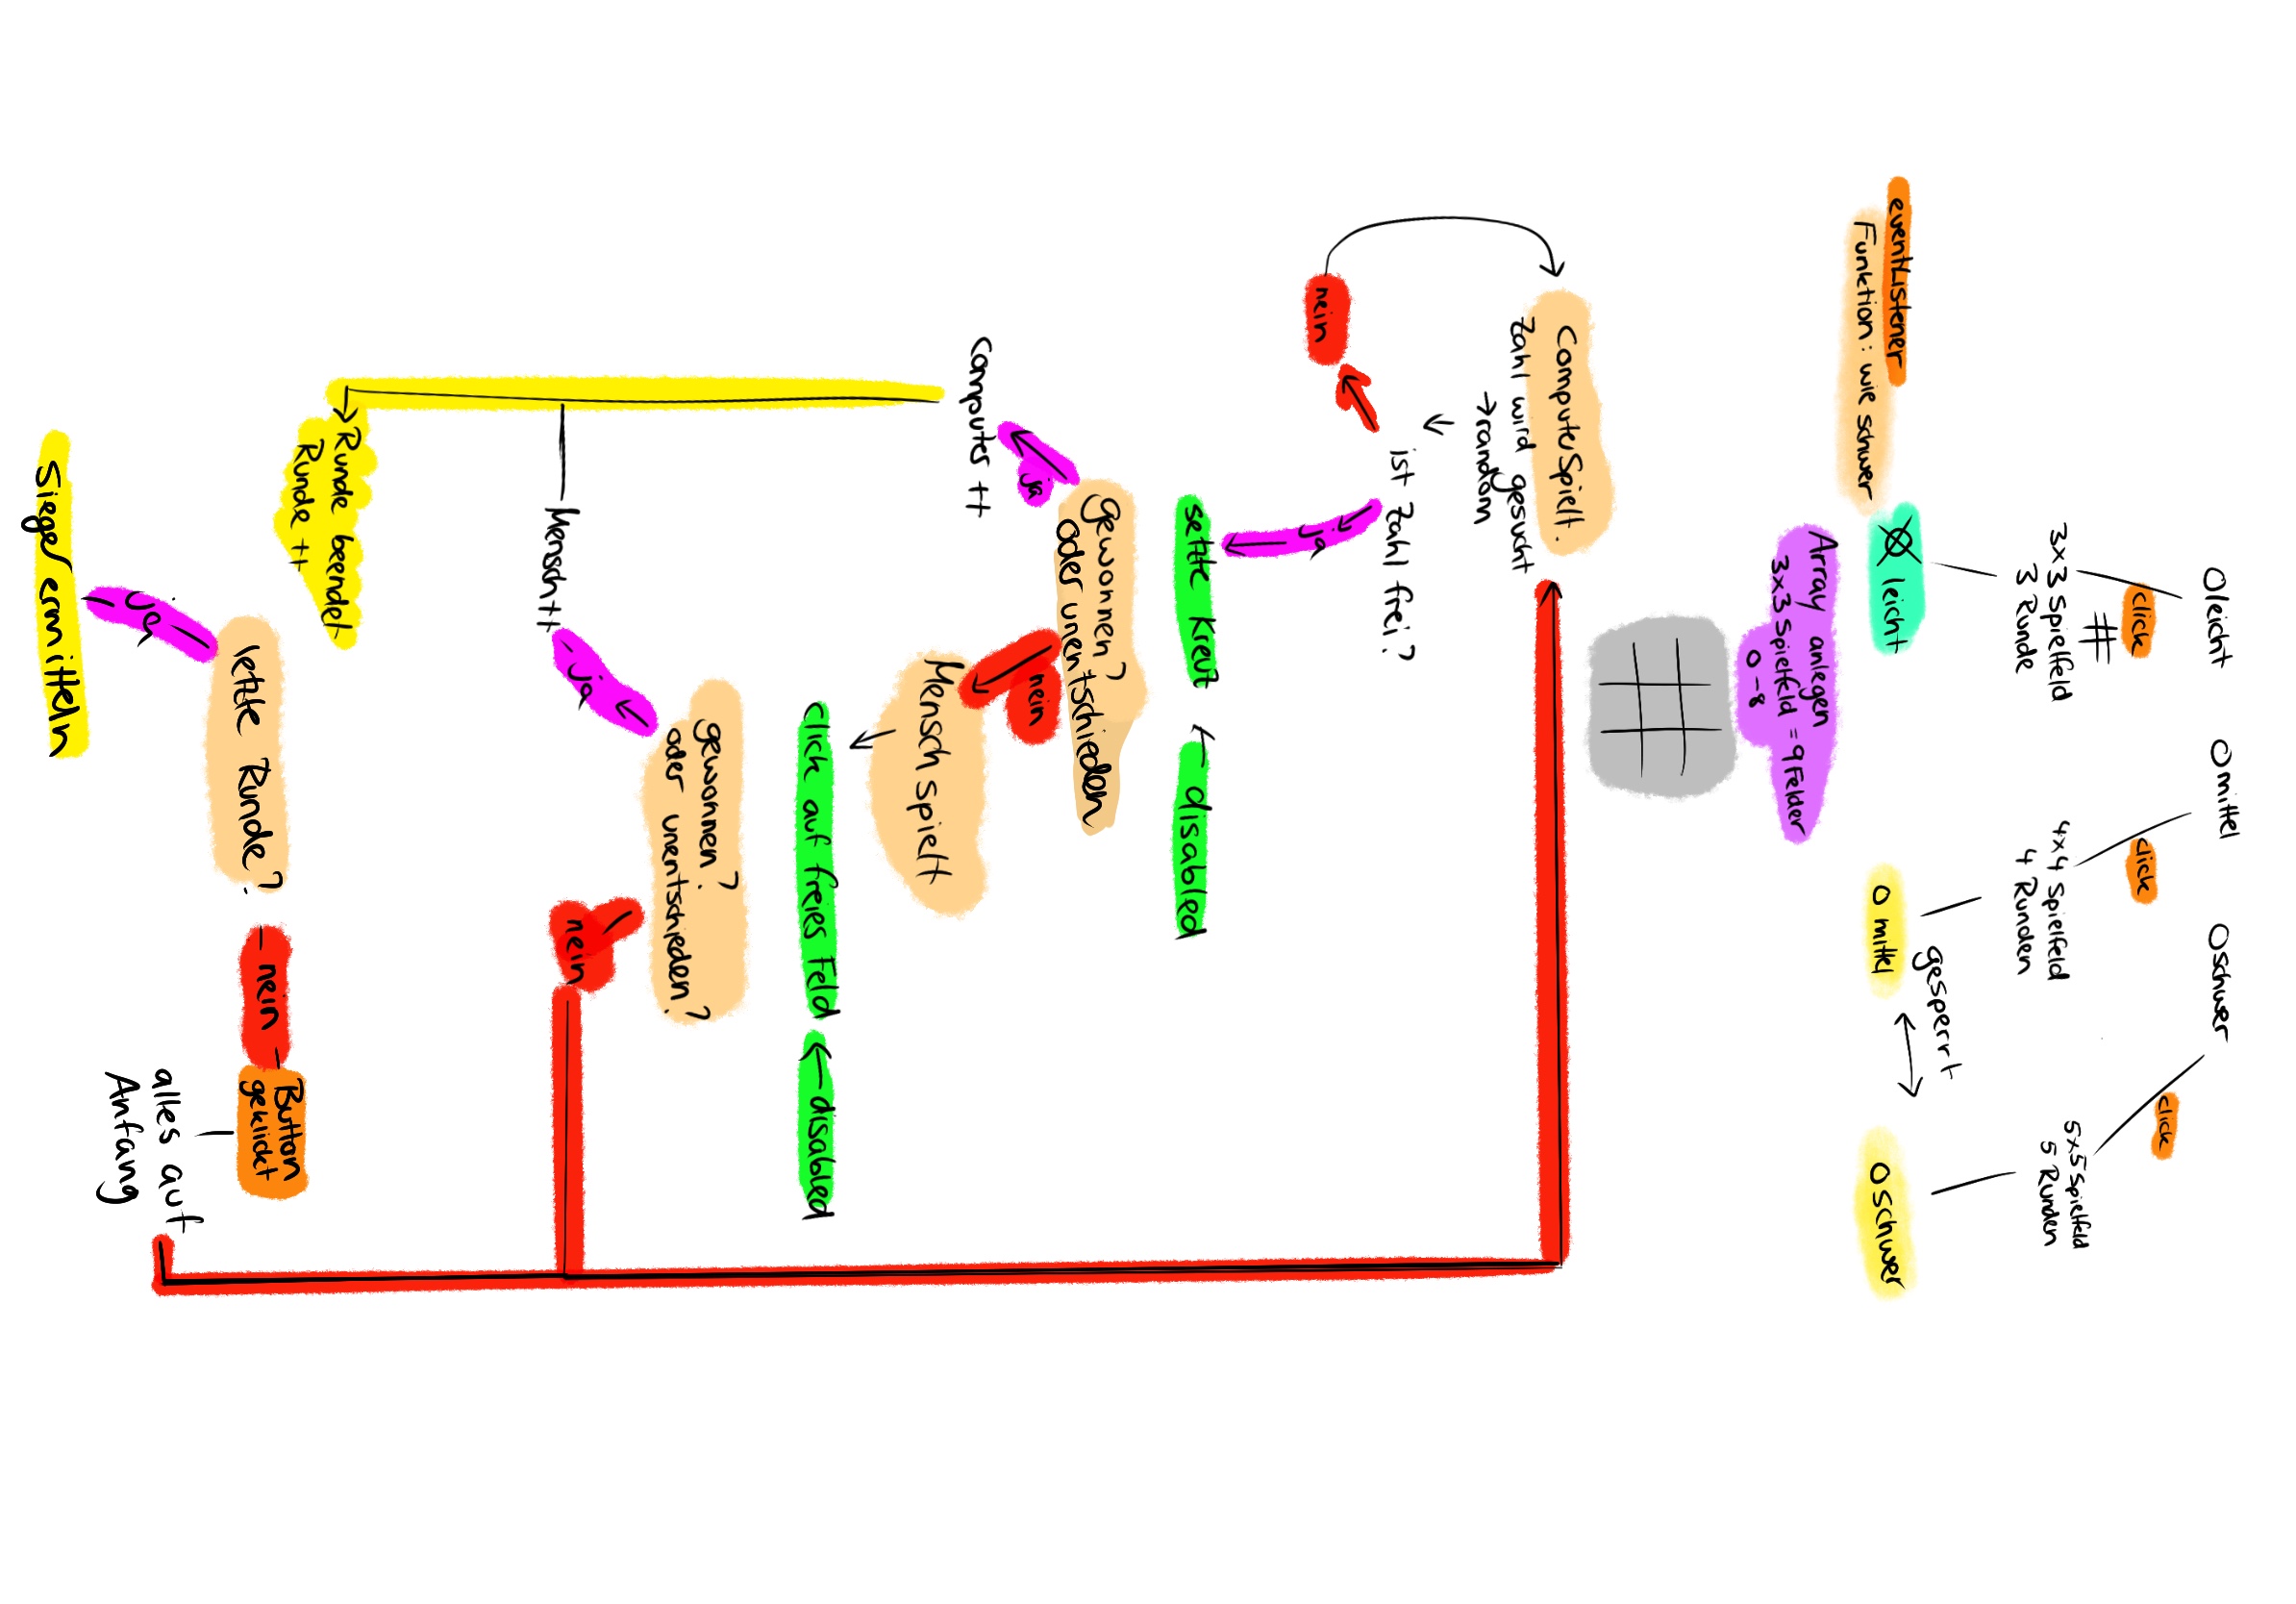 O leicht
O mittel
O schwer
click
click
click
#
3x3 Spielfeld
3 Runde
4x4 Spielfeld
4 Runden
5x5 Spielfeld
5 Runden
eventListener
Funktion: wie schwer
leicht
O mittel
gesperrt
O schwer
Array anlegen
3x3 Spielfeld = 9 Felder
0-8
Computer Spielt.
Zahl wird gesucht
→ random
ist Zahl frei?
nein
ja
setze Kreuz
← disabled
gewonnen?
oder unentschieden
ja
nein
Computer ++
Mensch spielt
click auf freies Feld
← disabled
gewonnen?
oder unentschieden?
ja
nein
Mensch ++
Runde beendet
Runde ++
letzte Runde?
nein
Button
geklickt
alles auf
Anfang
ja
Sieger ermitteln